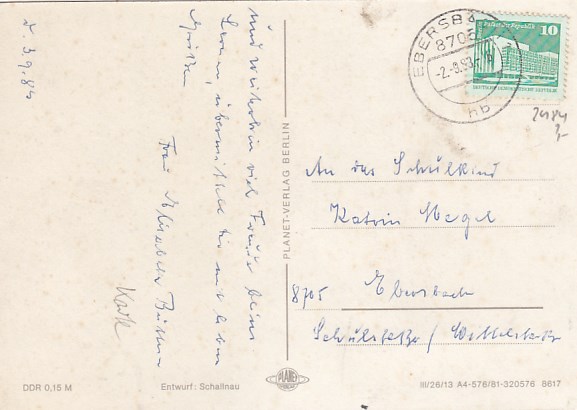 d. 3.9.83
Und weiterhin viel Freude beim
Lernen, übermittelt Dir mit lieben
Grüßen
Frau Elisabeth
Karte
PLANET-VERLAG BERLIN
EBERSBA
8705
-2.-9.83
hb
Palast der Republik 10
DEUTSCHE DEMOKRATISCHE REPUBLIK
2484
An das Schulkind
Katrin Nagel
8705 Ebersbach
Schulstraße /
DDR 0,15 M
Entwurf: Schallnau
PLANET
III/26/13 A4-576/81-320576 6617